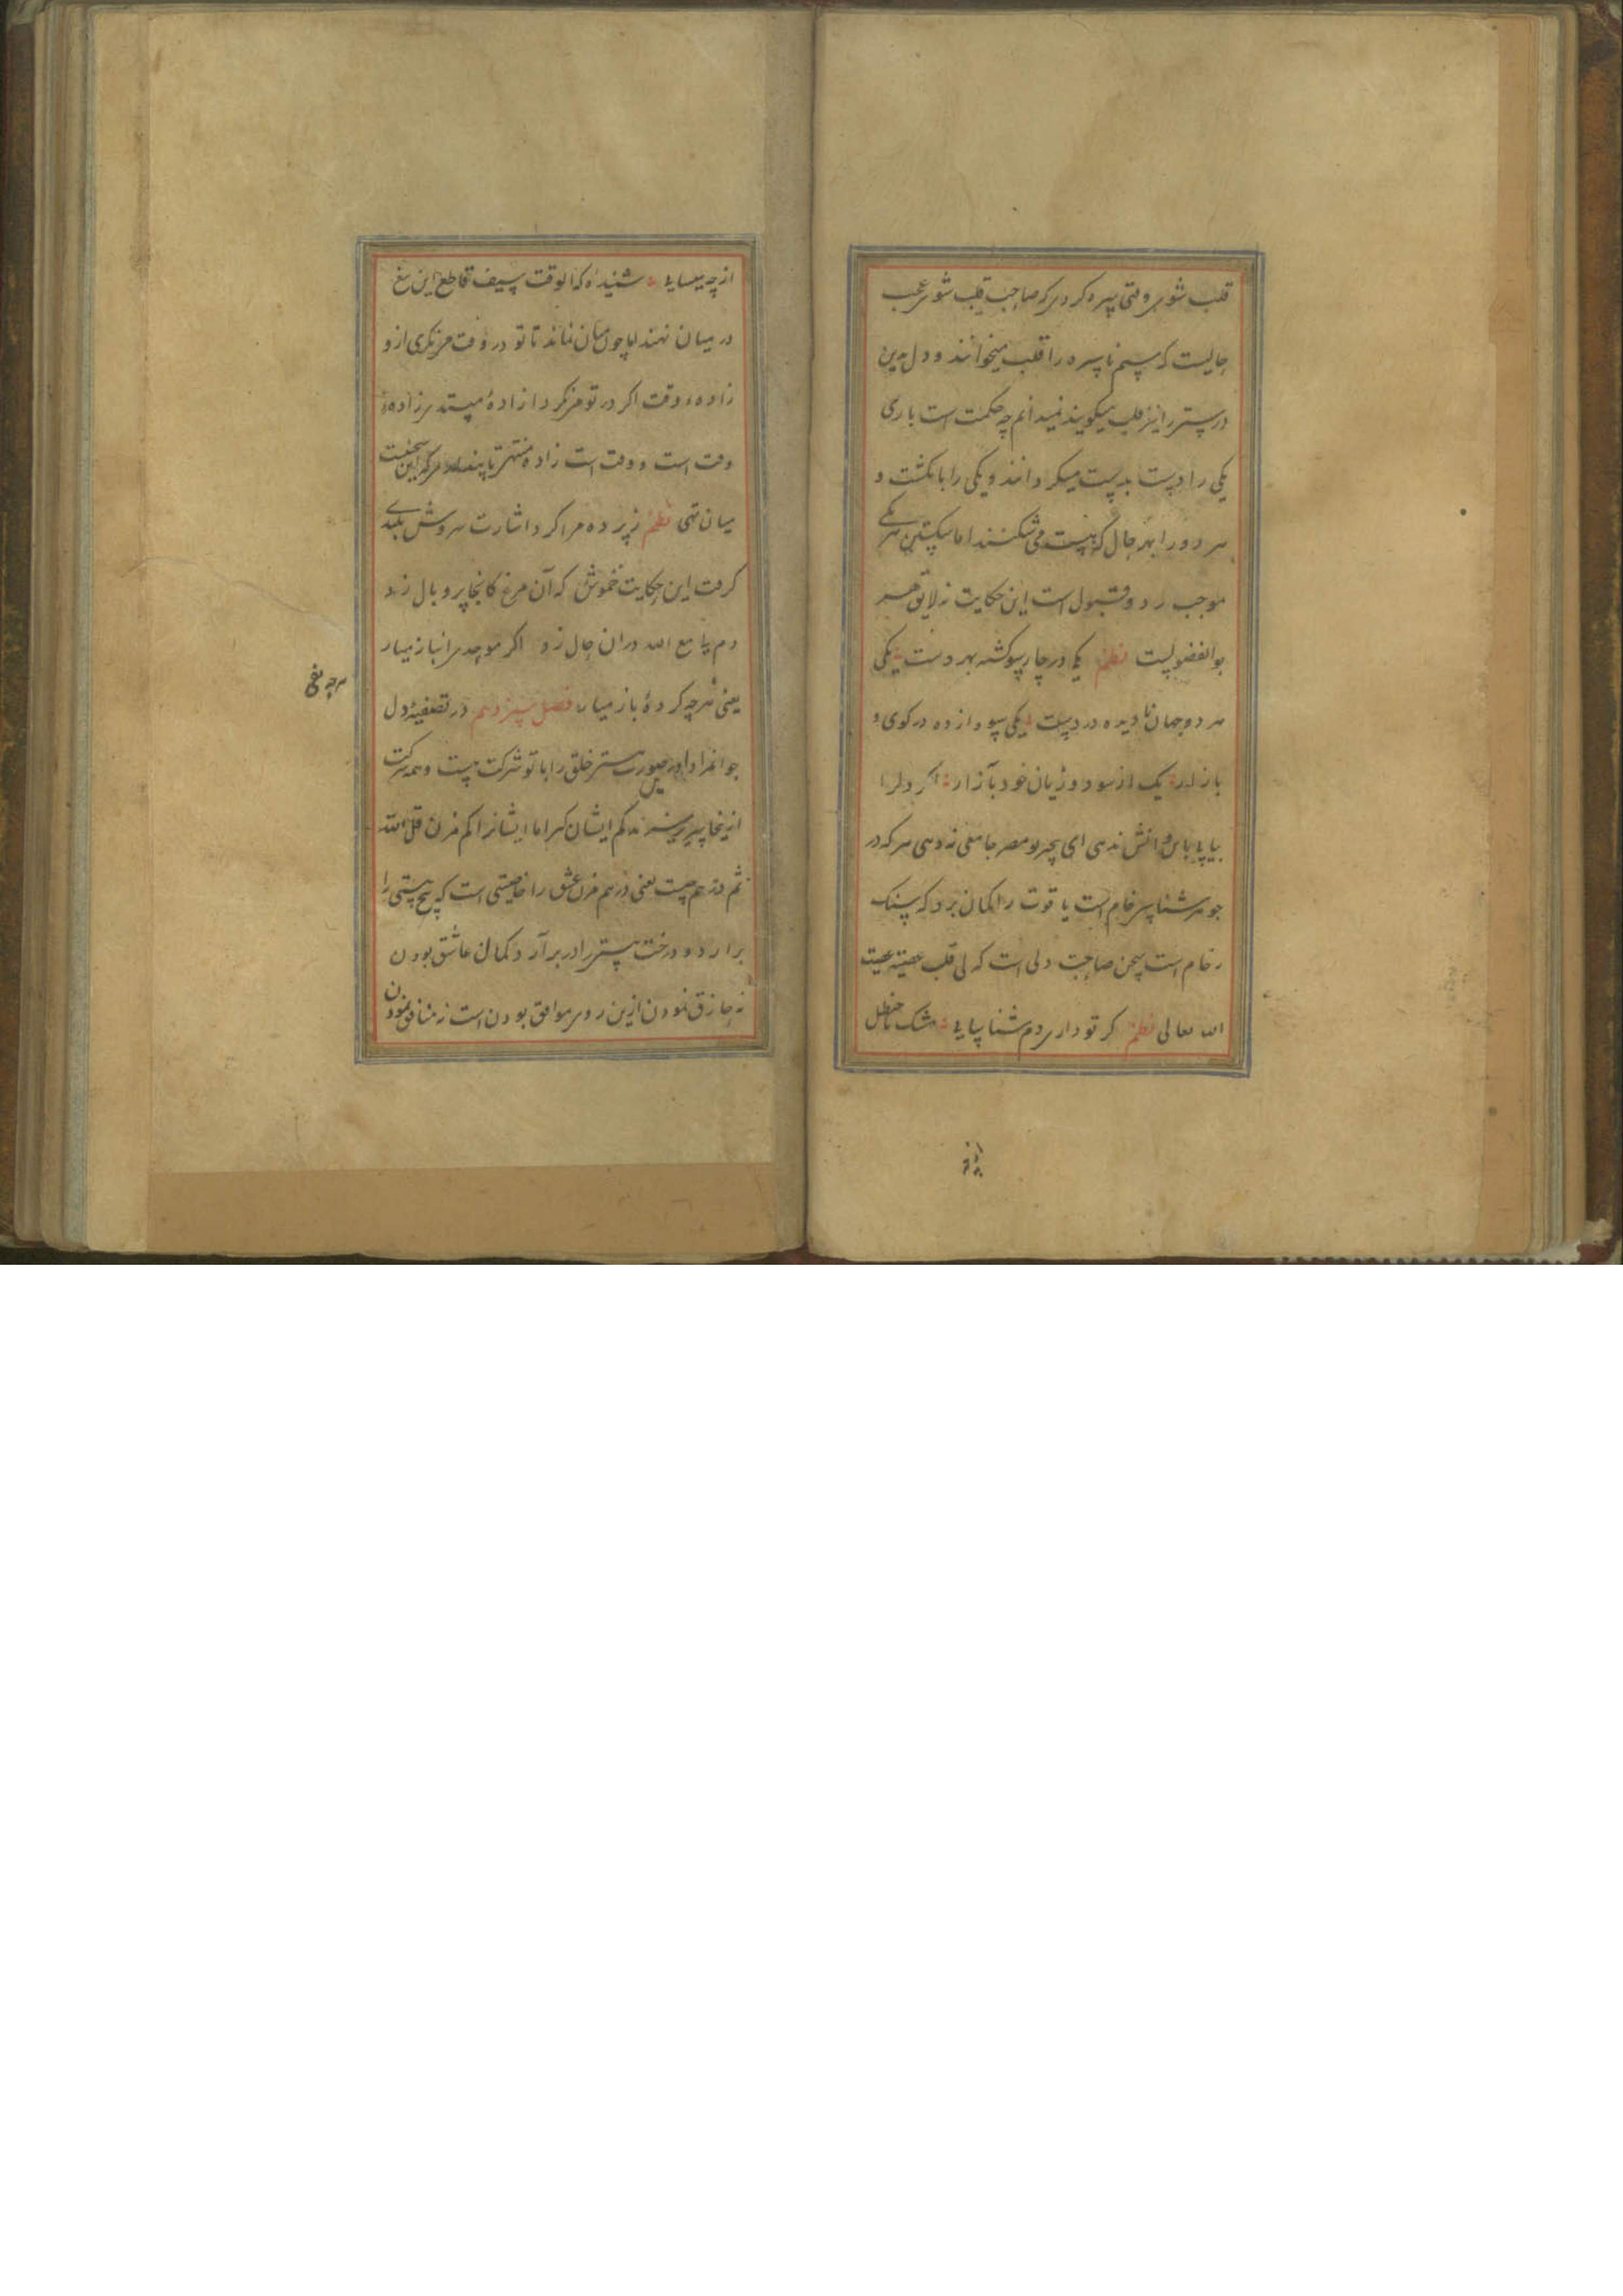 قلب شوی وقتی سره کردی که صاحب قلب شوی عجب
حالیست که سیم ناسره را قلب میخوانند و دل بدین
درستی را نیز قلب میگویند نمیدانم چه حکمت است باری
یکی را دست بدست میگردانند و یکی را بانگشت و
هر دو را بهر حال که هست می شکنند اما شکستن هر یکی
موجب رد و قبول است این حکایت نه لایق هر
بوالفضولیست نظم یکی در چار سو گشته بهر دست یکی
هر دو جهان نادیده در دست یکی سو وا زده در کوی و
بازار یک از سود و زیان خود بآزار اگر دل را
بیابی باس دانش ندهی ای بچه بو مصر جامعی نه دهی هر که در
جوهر شناسی خام است یاقوت را گمان برد که سنگ
رخام است سخن صاحب دلی است که لی قلب عصیته عصیت
الله تعالی نظم گر تو داری دم شناسایی مشک با حنظل
از چه
از چه میسایی شنیدهٔ که الوقت سیف قاطع این تیغ
در میان نهند اما چون میان نماند تا تو در وقت می نگری ازو
زادهٔ و وقت اگر در تو می نگرد از زادهٔ
وقت است و وقت است زاده منتهی تا هر که این سخنست
میان تهی نظم زیر ده مرا کرد اشارت سروش بلندی
گرفت این حکایت خموش که آن مرغ کانجا پر و بال زد
دم یا مع الله در آن حال زد اگر موحدی انباز میار
یعنی هر چه کردهٔ باز میار فصل سیزدهم در تصفیهٔ دل
جوانمردا در صورت هستی خلق را با تو شرکت هست و همه شرکت
ازینجا کم ایشان گیر اما ایشان را کم مزن قل الله
ثم ذرهم چیست یعنی درهم مزن عشق را خاصیتی است که بیخ هستی را
برآرد و درخت هستی را در بر آرد کمال عاشق بودن
نه حازق نمودن ازین روی موافق بودن است نه منافق نمودن
هر چه نفی